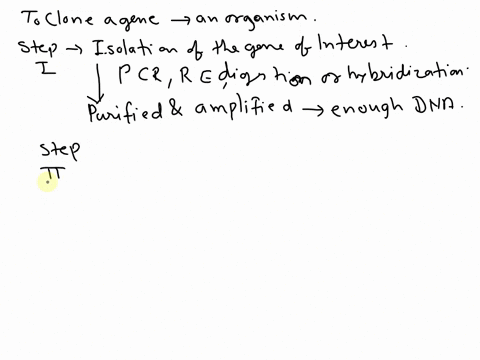 To Clone a gene → an organism.
Step → Isolation of the gene of Interest.
I
PCR, RE digestion or hybridization.
Purified & amplified → enough DNA.
Step
II